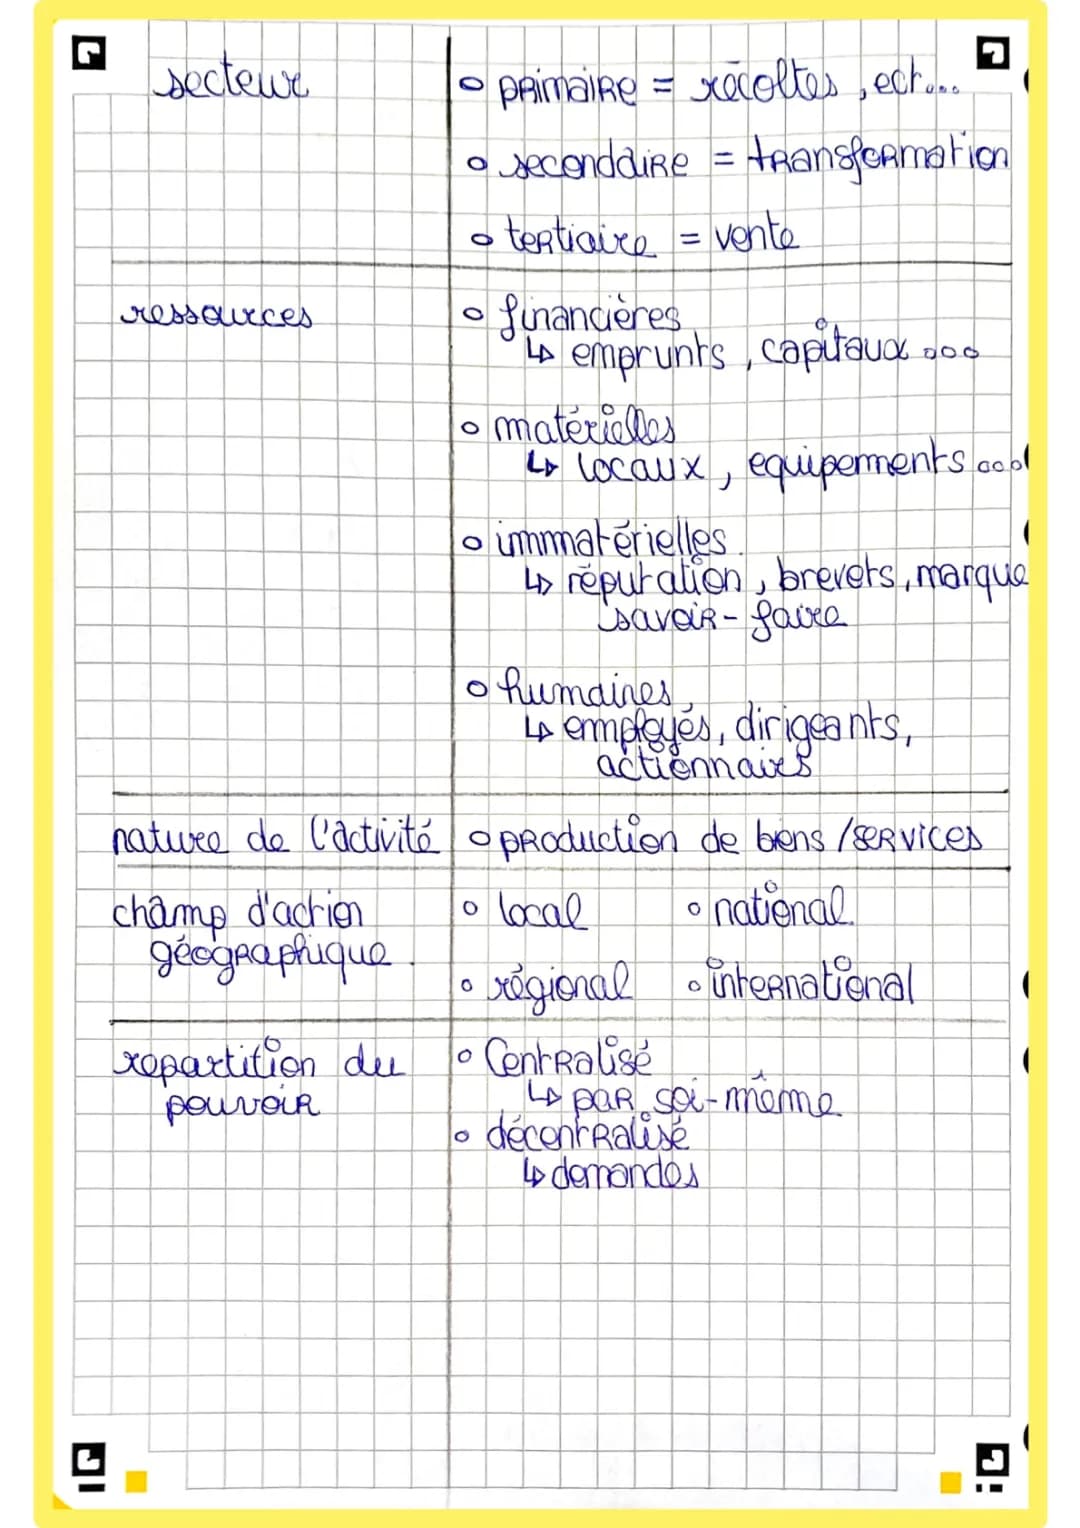 secteur
○ primaire = récoltes, ect...
○ seconddaire = transformation
○ tertiaire = vente
ressources
○ financières
↳ emprunts, capitaux ...
○ matérielles
↳ locaux, equipements ...
○ immatérielles.
↳ réputation, brevets, marque
savoir-faire
○ humaines
↳ employés, dirigeants,
actionnaires
nature de l'activité
○ production de biens / services
champ d'action
géographique.
○ local ○ national.
○ régional ○ international
repartition du
pouvoir
○ Centralisé
↳ par soi-même.
○ décentralisé
↳ demandés